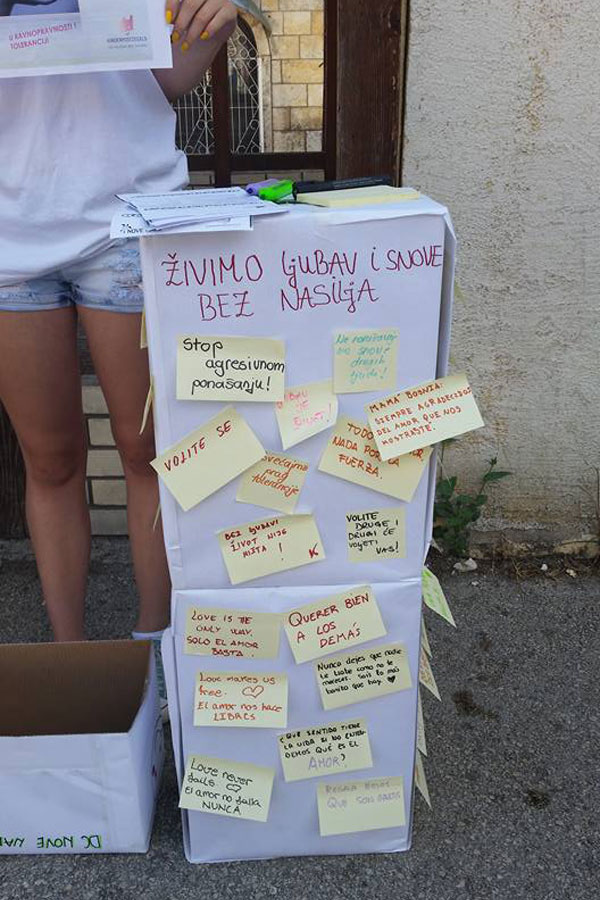 U RAVNOPRAVNOSTI I
TOLERANCIJI
ŽIVIMO ljUBAV i SNOVE
BEZ NASILJA
Stop
agresivnom
ponašanju!
VOLITE SE
MAMÁ BOSNIA:
SIEMPRE AGRADECIDOS
DEL AMOR QUE NOS
MOSTRASTE.
TODO
NADA POR LA
FUERZA.
prag
tolerancije
BEZ LJUBAVI
ŽIVOT NIJE
NIŠTA ! K
VOLITE
DRUGE I
DRUGI ĆE
VOLJETI
VAS!
LOVE IS THE
ONLY WAY.
SOLO EL AMOR
BASTA.
QUERER BIEN
A LOS
DEMÁS
Love makes us
free.
El amor nos hace
LIBRES
Nunca dejes que nadie
te trate como no te
mereces. Sois lo más
bonito que hay.
¿QUÉ SENTIDO TIENE
LA VIDA SI NO ENTEN
DEMOS QUÉ ES EL
AMOR?
Love never
fails
El amor no falla
NUNCA
REGALA BESOS
QUE SON GRATIS
DC NOVE